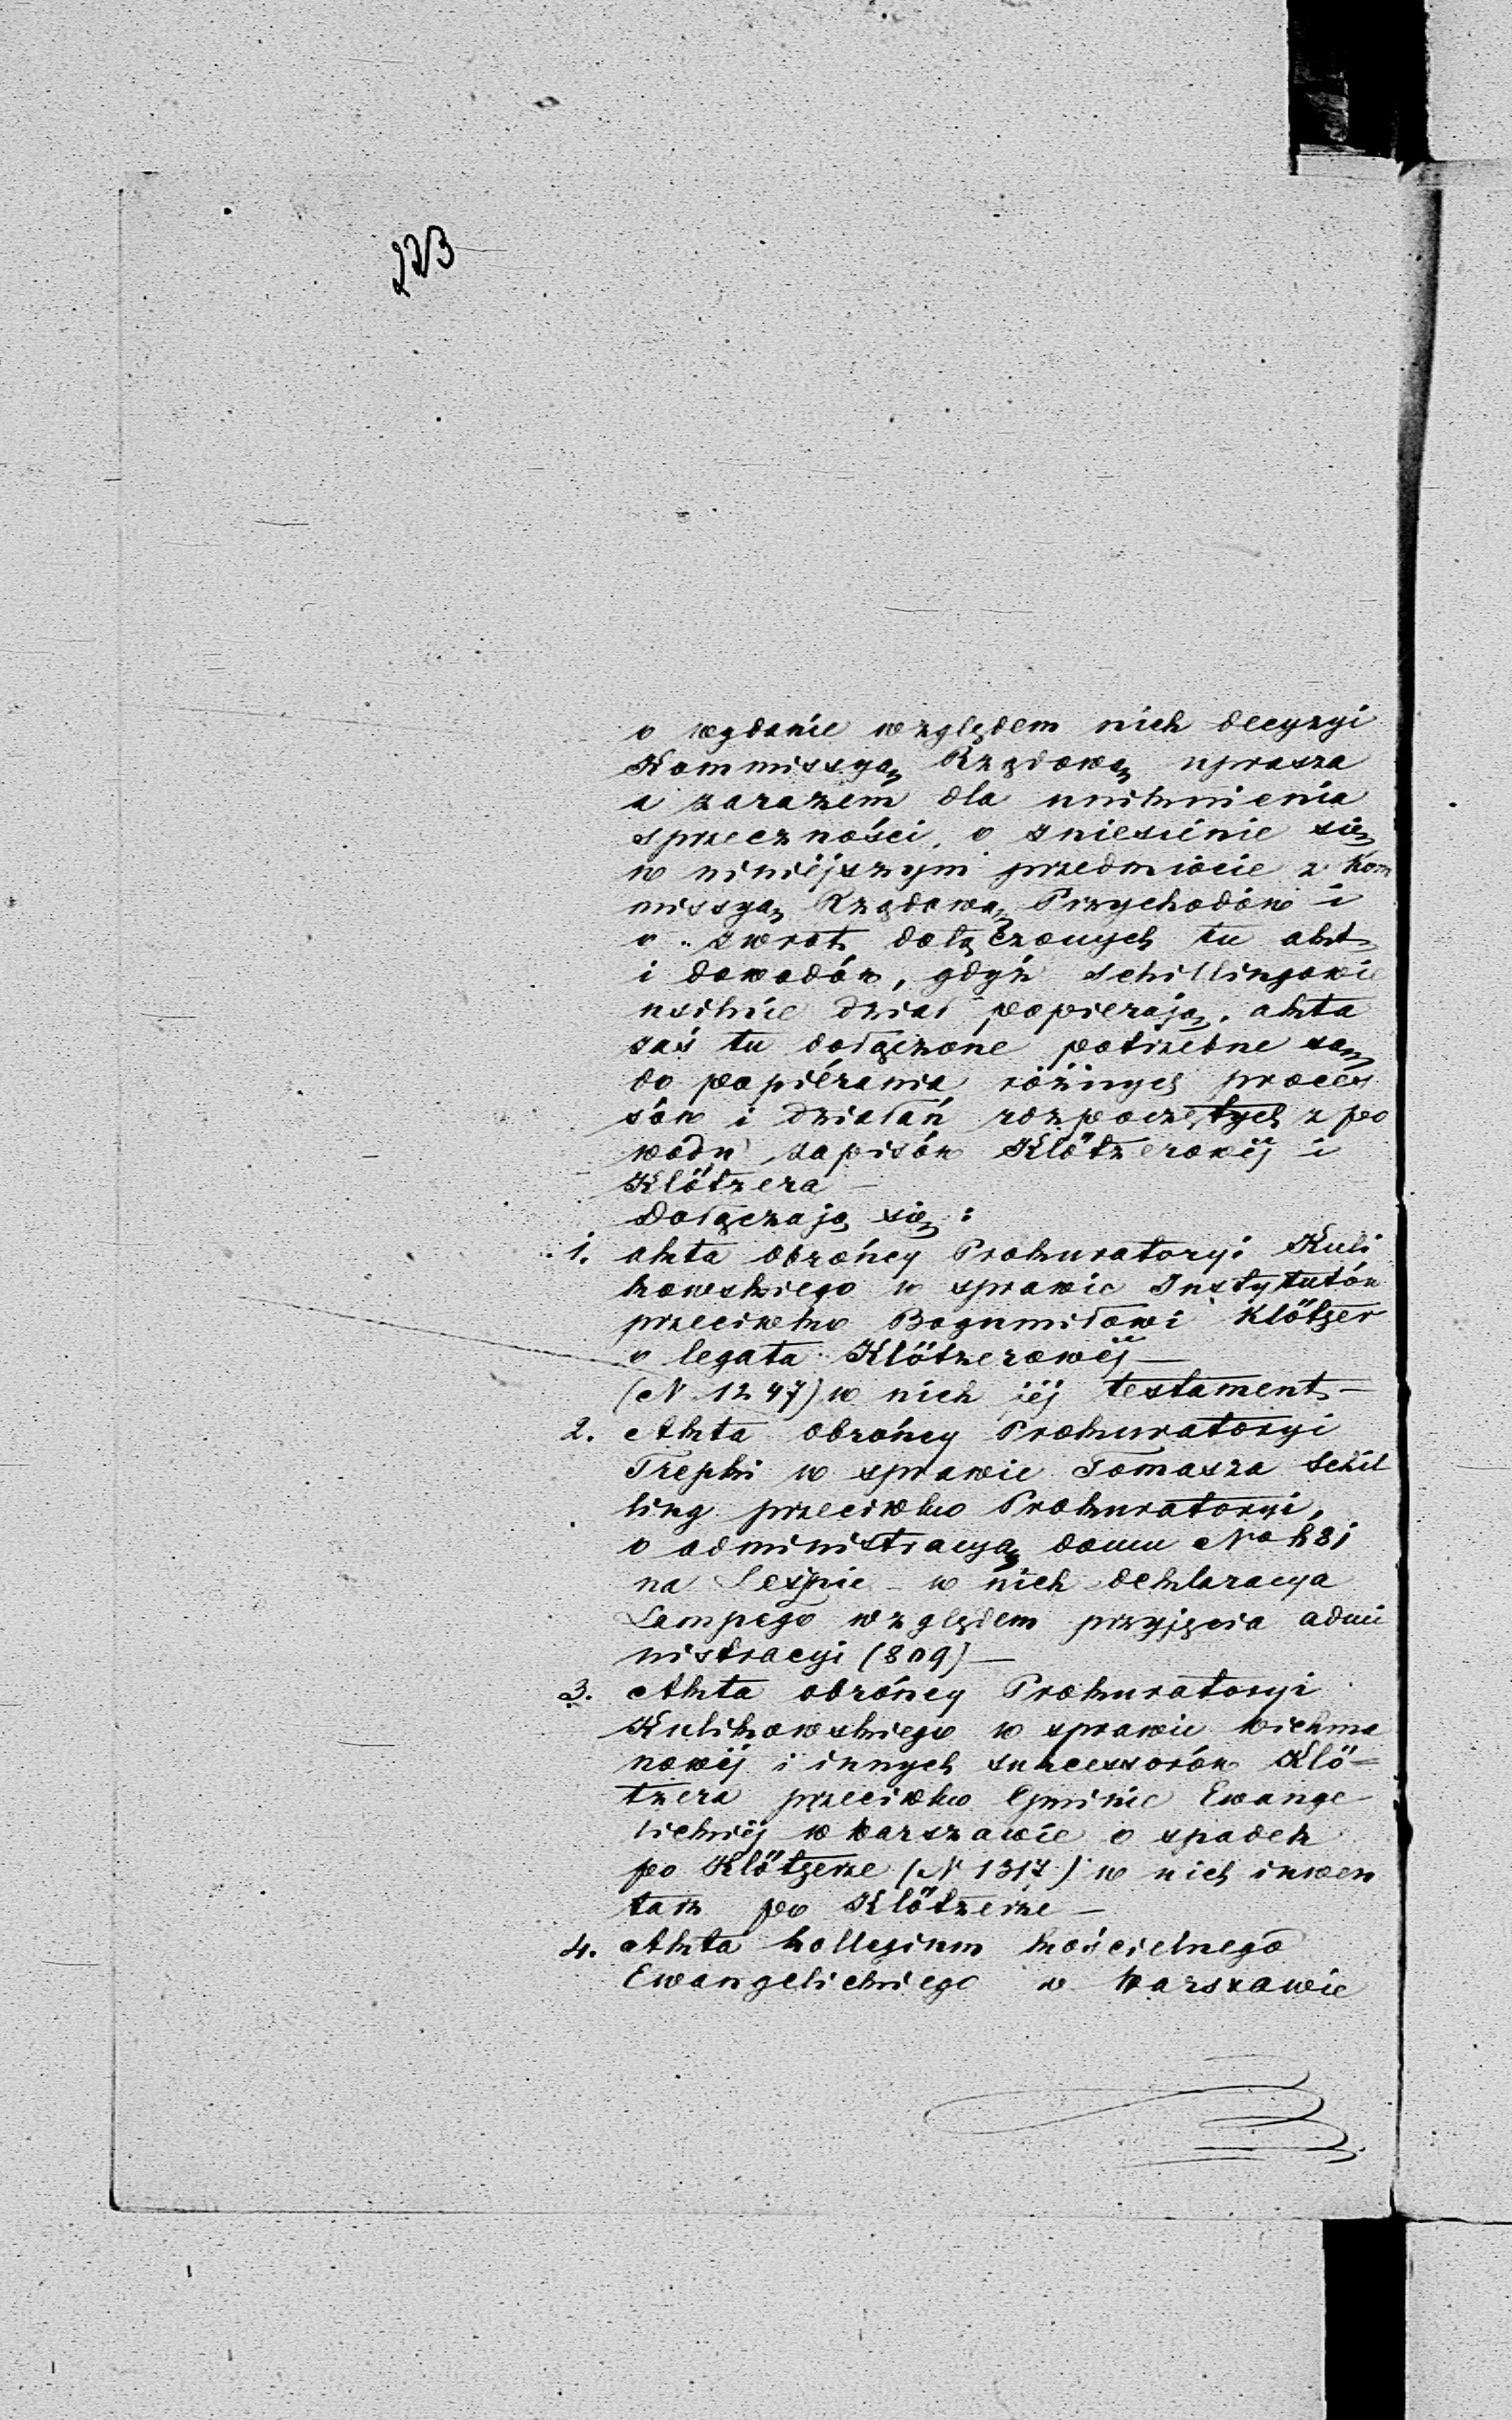 223
o wydanie względem nich decyzyi
Kommissyą Rządową uprasza
a zarazem dla uniknienia
sprzeczności, o zniesienie się
w niniéjszym przedmiocie z Kom
missyą Rządową Przychodów i
o zwrot dołączonych tu akt
i dowodów, gdyż Schillingowie
usilnie dział popierają, akta
zaś tu dołączone potrzebne są
do popiérania różnych proces
sów i działań rozpoczętych z po
wodu zapisów Klötzerowéj i
Klötzera —
Dołączają się:
1. akta obrońcy Prokuratoryi Kuli
kowskiego w sprawie Instytutów
przeciwko Bogumiłowi Klötzer
o legata Klötzerowéj —
(N 1247) w nich jéj testament —
2. Akta obrońcy Prokuratoryi
Trepki w sprawie Tomasza Schil
ling przeciwko Prokuratoryi,
o administracyą domu No
na Lesznie — w nich deklaracya
Lampego względem przyjęcia admi
nistracyi (809) —
3. Akta obrońcy Prokuratoryi
Kulikowskiego w sprawie Wichma
nowéj i innych sukcessorów Klö=
tzera przeciwko Gminie Ewange
lickiéj w Warszawie o spadek
po Klötzerze (N 1317) w nich inwen
tarz po Klötzerze —
4. Akta kollegium kościelnego
Ewangelickiego w Warszawie